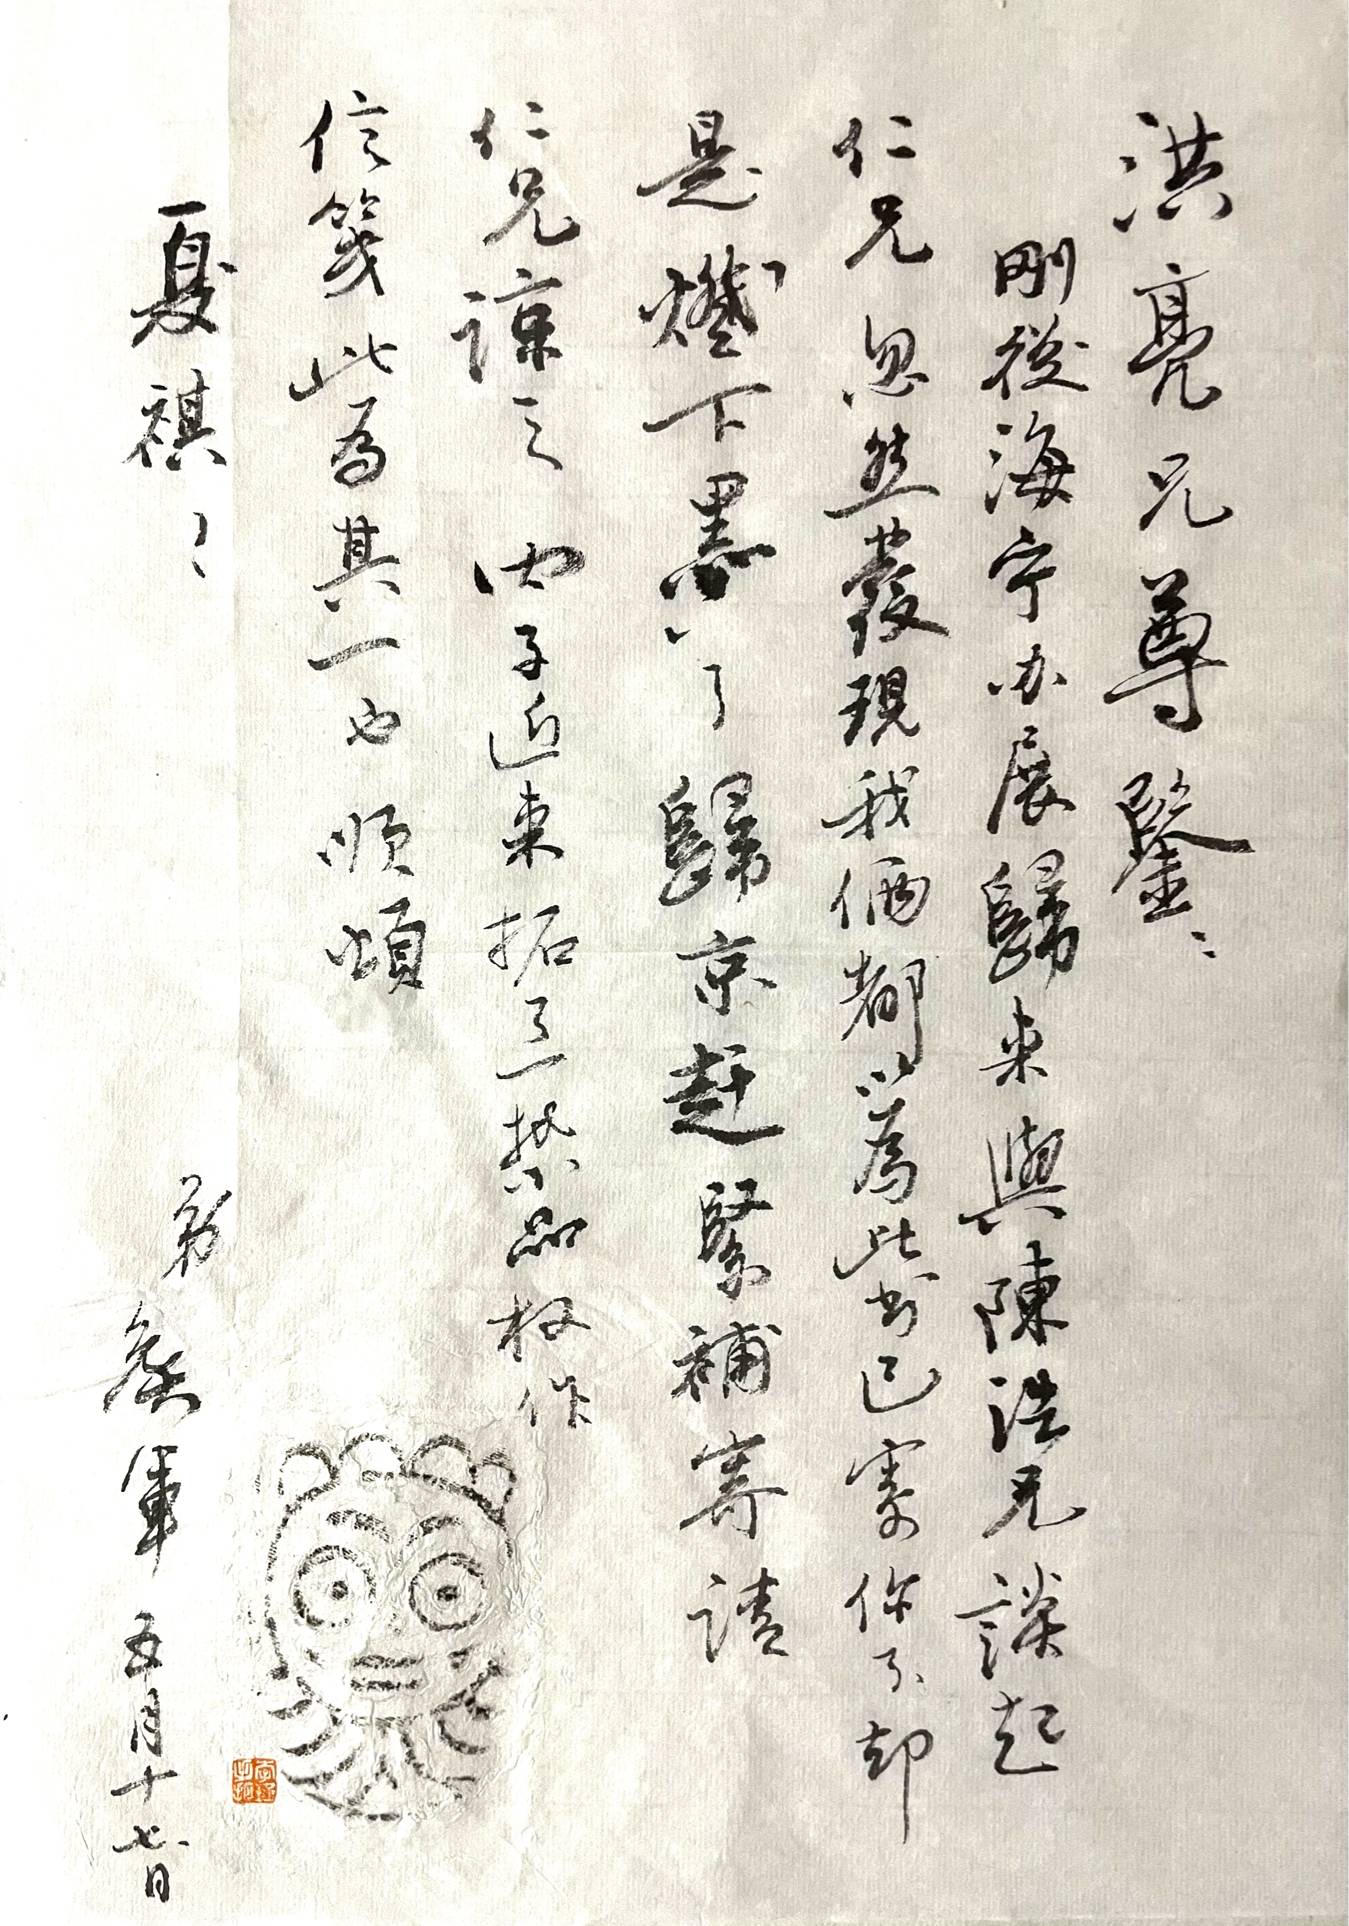 洪亮兄尊鑒：
剛從海寧办展歸来與陳浩兄談起
仁兄忽然發現我倆都以為此書已寄你了却
是燈下黑了歸京赶緊補寄请
仁兄諒之 内子近来拓了一批品权作
信箋此為其一也順頌
夏祺：
弟 军 五月十七日